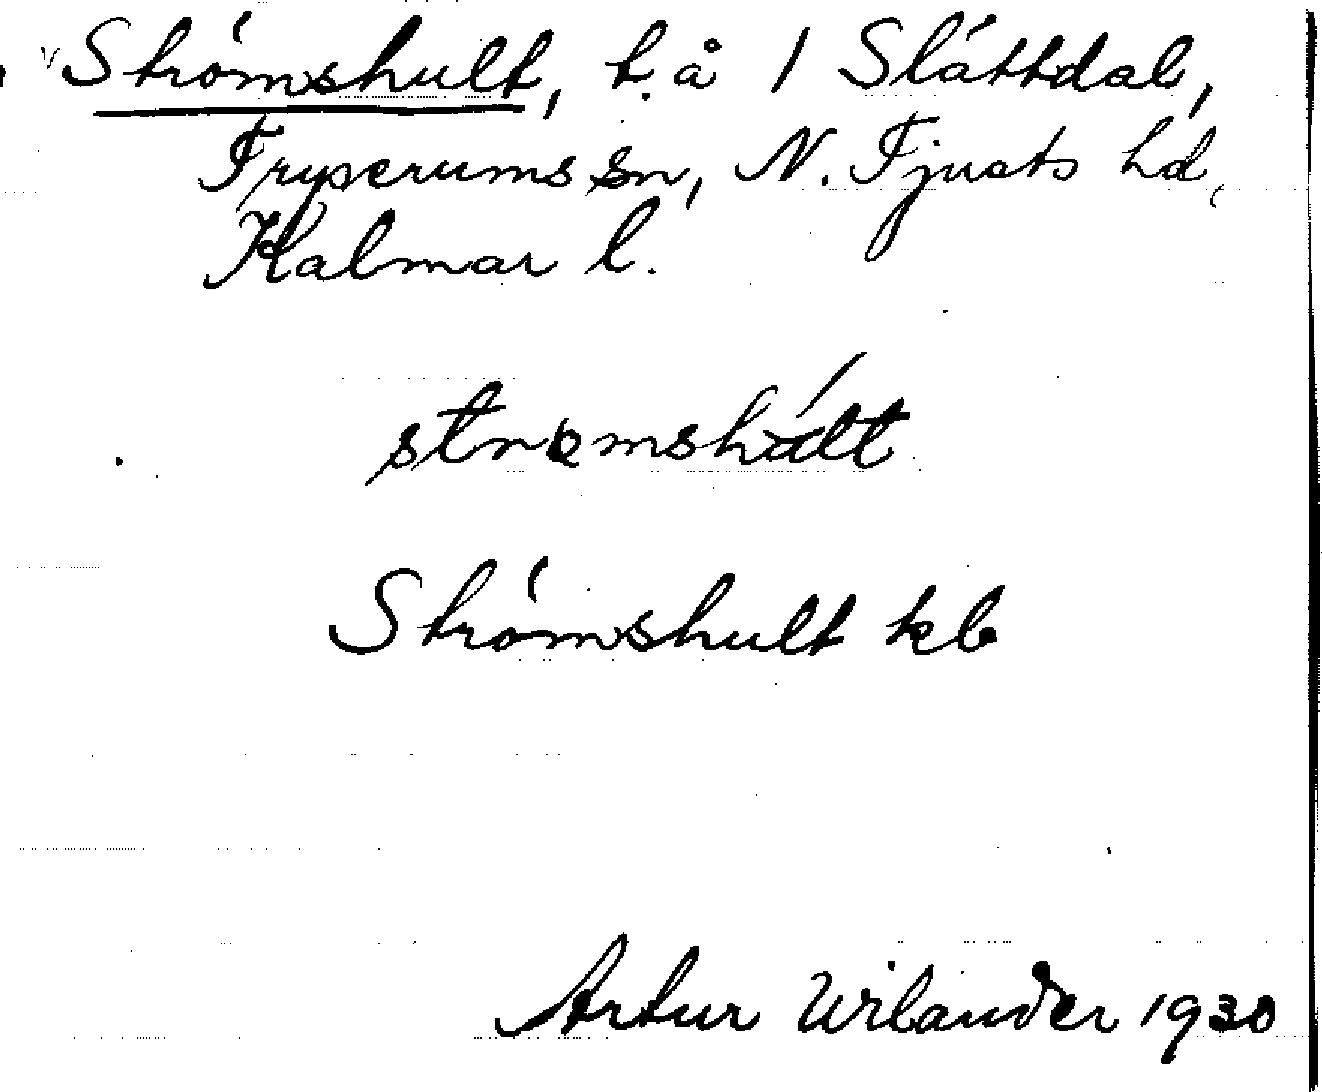 Strömshult, t. å 1 Slättdal,
Tryserums sn, N. Tjusts hd,
Kalmar l.
strømshált
Strömshult kb
Artur Wilander 1930